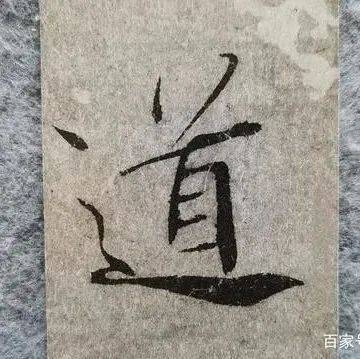 道
百家号